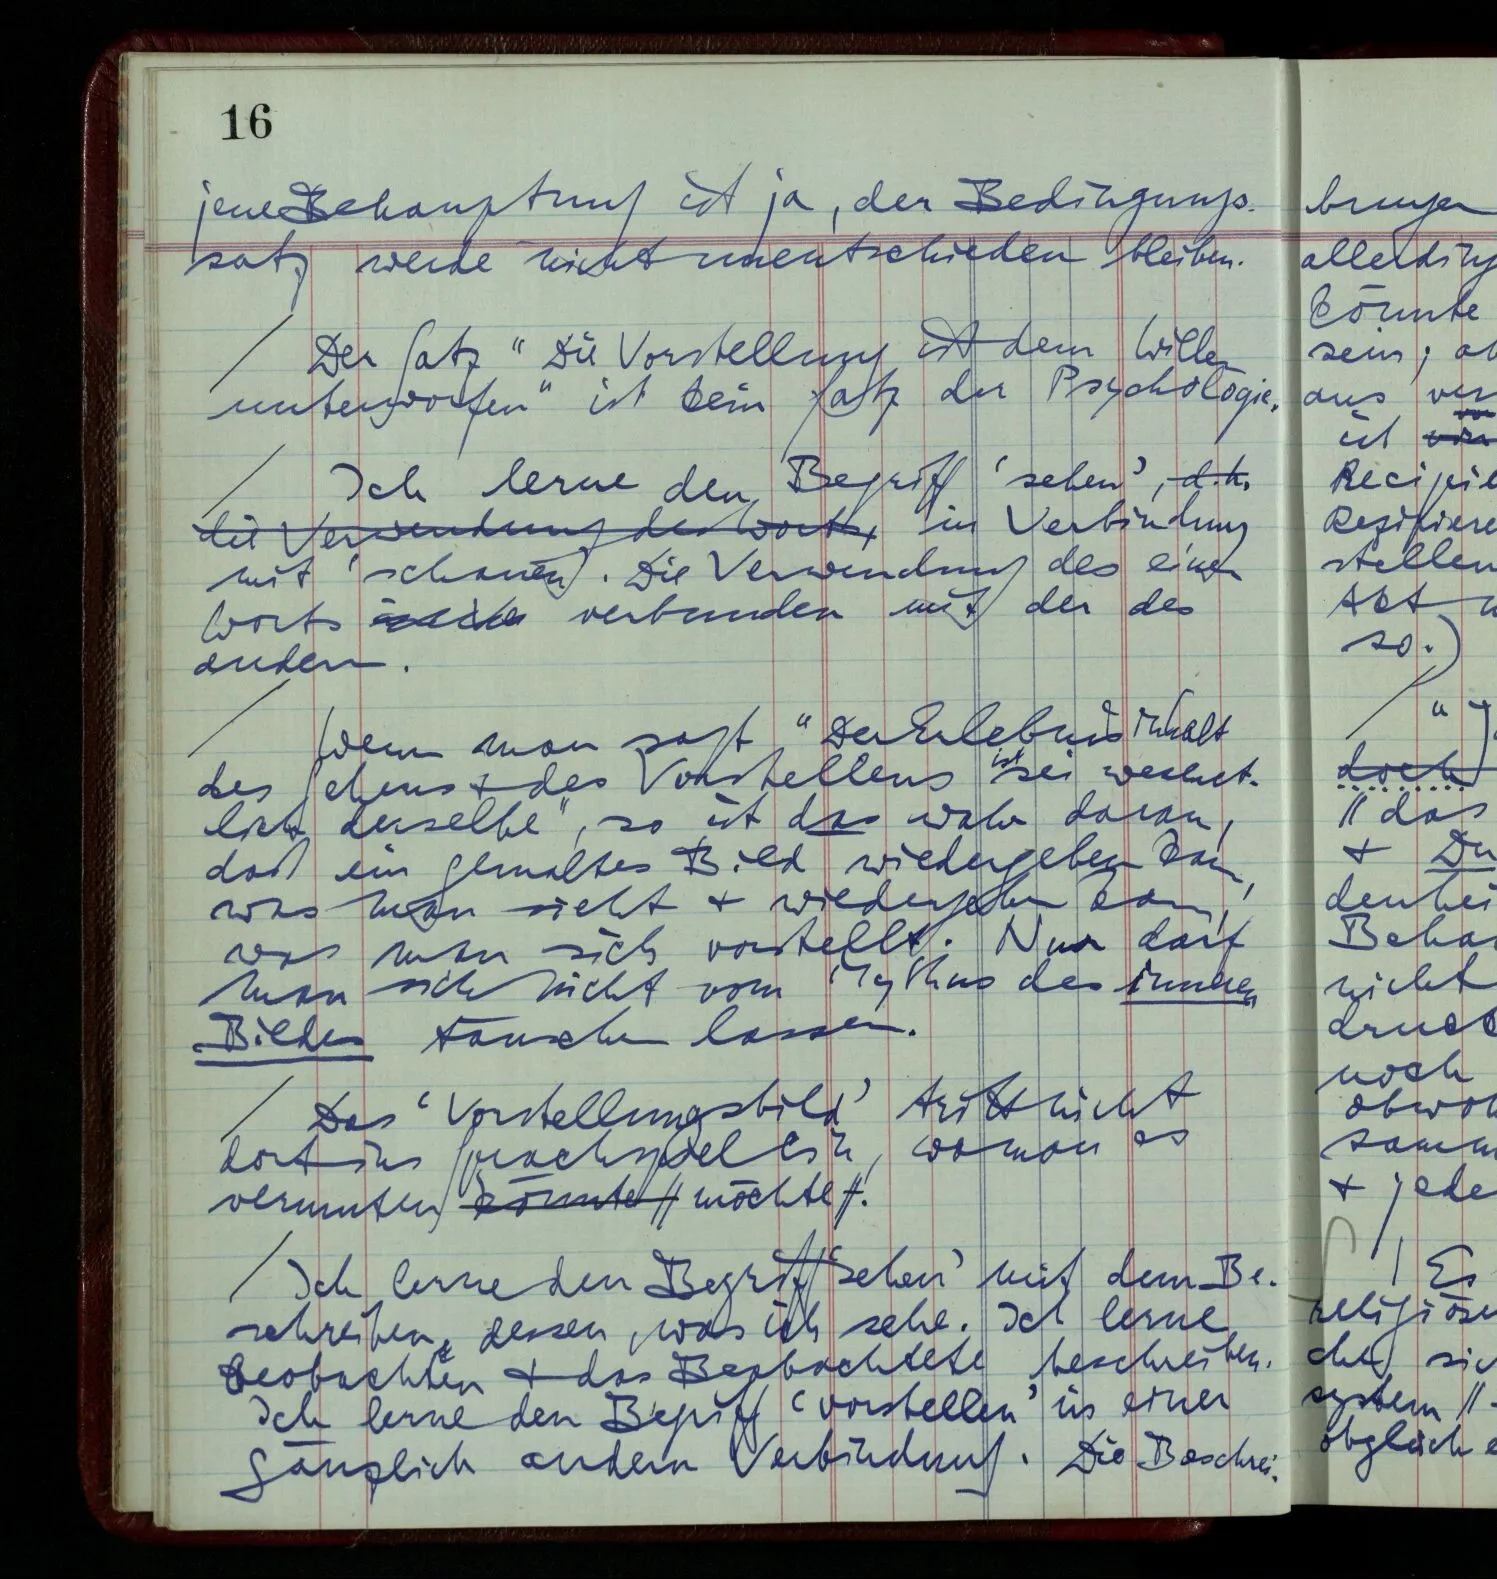 16
jene Behauptung ist ja, der Bedingungs-
satz werde nicht unentschieden bleiben.
/ Der Satz "Die Vorstellung ist dem Willen
unterworfen" ist kein Satz der Psychologie.
/ Ich lerne den Begriff 'sehen', d.h.
die Verwendung des Worts, in Verbindung
mit 'schauen'. Die Verwendung des einen
Worts verbunden mit der des
andern.
/ Wenn man sagt "Der Erlebnisinhalt
des Sehens + des Vorstellens ist sei wesent-
lich derselbe", so ist das wahr daran,
daß ein gemaltes Bild wiedergeben kann,
was man sieht + wiedergeben kann,
was man sich vorstellt. Nur darf
man sich nicht vom Mythus des innern
Bildes täuschen lassen.
/ Das 'Vorstellungsbild' tritt nicht
dort ins Sprachspiel ein, wo man es
vermuten könnte // möchte //.
/ Ich lerne den Begriff 'sehen' mit dem Be-
schreiben dessen, was ich sehe. Ich lerne
beobachten + das Beobachtete beschreiben.
Ich lerne den Begriff 'vorstellen' in einer
gänzlich andern Verbindung. Die Beschrei-
bungen
allerding
könnte
sein; ab
aus ver
ist
Recipie
Rezipiere
stellen
Akt
so.)
/ "
doch
// das
+ Du
denhei
Behau
nicht
druck
noch
obwoh
samm
+ jede
/ Es
religiöse
che sic
system //
obgleich e